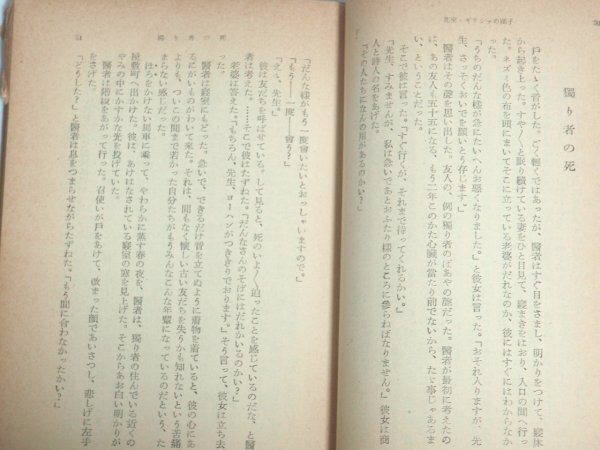 花束・ギリシャの踊子
獨り者の死
戸をたゝく音がした。ごく輕くではあったが、醫者はすぐ目をさまし、明かりをつけて、寢床
から起き上った。すや〳〵と眠り續けている妻をひと目見て、寢まきをはおり、入口の間へ行っ
た。ネズミ色の布を頭にまいてそこに立っている老婆がだれなのか、彼にはすぐにはわからなか
った。
「うちのだんな様が急にたいへんお惡くなりました。」と彼女は言った。「おそれ入りますが、先
生、さっそくおいでを願いとう存じます。」
醫者はその聲を思い出した。友人の、例の獨り者のばあやの聲だった。醫者が最初に考えたの
は、あの友人も五十五になる、もう二年このかた心臟が當たり前でないから、たゞ事じゃあるま
い、ということだった。
そこで彼は言った。「すぐ行くが、それまで待ってくれるかい。」
「先生、すみませんが、私は急いであとおふたり様のところに參らねばなりません。」彼女は商
人と詩人の名をあげた。
「その人たちになんの用があるのかい？」
獨り者の死
「だんな様がもう一度會いたいとおっしゃいますので。」
「もう——一度——會う？」
「えゝ、先生。」
彼は友だちを呼ばせている。して見ると、死のいよ〳〵迫ったことを感じているのだな、と醫
者は考えた。……そこで彼はたずねた。「だんなさんのそばにはだれかいるのかい？」
老婆は答えた。「もちろん、先生、ヨーハンがつきっきりでおります。」そう言って、彼女は立ち去
った。
醫者は寢室にもどった。急いで、できるだけ音を立てぬように着物を着ていると、彼の心にあ
るにがいものがわいて來た。それは、間もなく懷しい古い友だちを失うかも知れないという苦痛
よりも、ついこの間まで若かった自分たちがもうみんなこんな年輩になっているのだという、た
まらない感じだった。
ほろをかけない馬車に乘って、やわらかに蒸す春の夜を、醫者は、獨り者の住んでいる近くの
屋敷町へ出かけた。彼は、あけはなされている寢室の窓を見上げた。そこからあお白い明かりが
やみの中にかすかな光を投げていた。
醫者は階段をあがって行った。召使いが戸をあけて、改まった顔であいさつし、悲しげに左手
をさげた。
「どうした？」と醫者は息をつまらせながらたずねた。「もう間に合わなかったかい？」